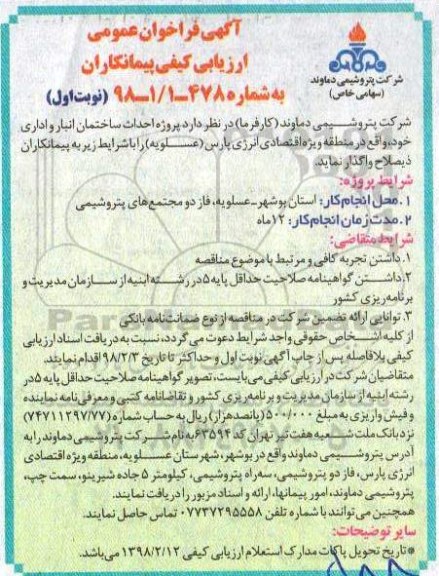 آگهی فراخوان عمومی
ارزیابی کیفی پیمانکاران
به شماره ۴۷۸-۱/۱-۹۸ (نوبت اول)
شرکت پتروشیمی دماوند
(سهامی خاص)
شرکت پتروشیمی دماوند (کارفرما) در نظر دارد پروژه احداث ساختمان انبار و اداری
خود، واقع در منطقه ویژه اقتصادی انرژی پارس (عسلویه) را با شرایط زیر به پیمانکاران
ذیصلاح واگذار نماید.
شرایط پروژه:
۱. محل انجام کار: استان بوشهر-عسلویه، فاز دو مجتمع‌های پتروشیمی
۲. مدت زمان انجام کار: ۱۲ ماه
شرایط متقاضی:
۱. داشتن تجربه کافی و مرتبط با موضوع مناقصه
۲. داشتن گواهینامه صلاحیت حداقل پایه ۵ در رشته ابنیه از سازمان مدیریت و
برنامه‌ریزی کشور
۳. توانایی ارائه تضمین شرکت در مناقصه از نوع ضمانت‌نامه بانکی
از کلیه اشخاص حقوقی واجد شرایط دعوت می گردد، نسبت به دریافت اسناد ارزیابی
کیفی بلافاصله پس از چاپ آگهی نوبت اول و حداکثر تا تاریخ ۹۸/۲/۳ اقدام نمایند.
متقاضیان شرکت در ارزیابی کیفی می‌بایست، تصویر گواهینامه صلاحیت حداقل پایه ۵ در
رشته ابنیه از سازمان مدیریت و برنامه‌ریزی کشور و تقاضانامه کتبی و معرفی‌نامه نماینده
و فیش واریزی به مبلغ ۵۰۰/۰۰۰ (پانصدهزار) ریال به حساب شماره (۷۴۷۱۱۲۹۷/۷۷)
نزد بانک ملت شعبه هفت تیر تهران کد ۶۳۵۹۴ به نام شرکت پتروشیمی دماوند را به
آدرس پتروشیمی دماوند واقع در بوشهر، شهرستان عسلویه، منطقه ویژه اقتصادی
انرژی پارس، فاز دو پتروشیمی، سه‌راه پتروشیمی، کیلومتر ۵ جاده شیرینو، سمت چپ،
پتروشیمی دماوند، امور پیمانها، ارائه و اسناد مزبور را دریافت نمایند.
همچنین می‌توانند با شماره تلفن ۰۷۷۳۷۲۹۵۵۵۸ تماس حاصل نمایند.
سایر توضیحات:
*تاریخ تحویل پاکات مدارک استعلام ارزیابی کیفی ۱۳۹۸/۲/۱۲ می‌باشد.